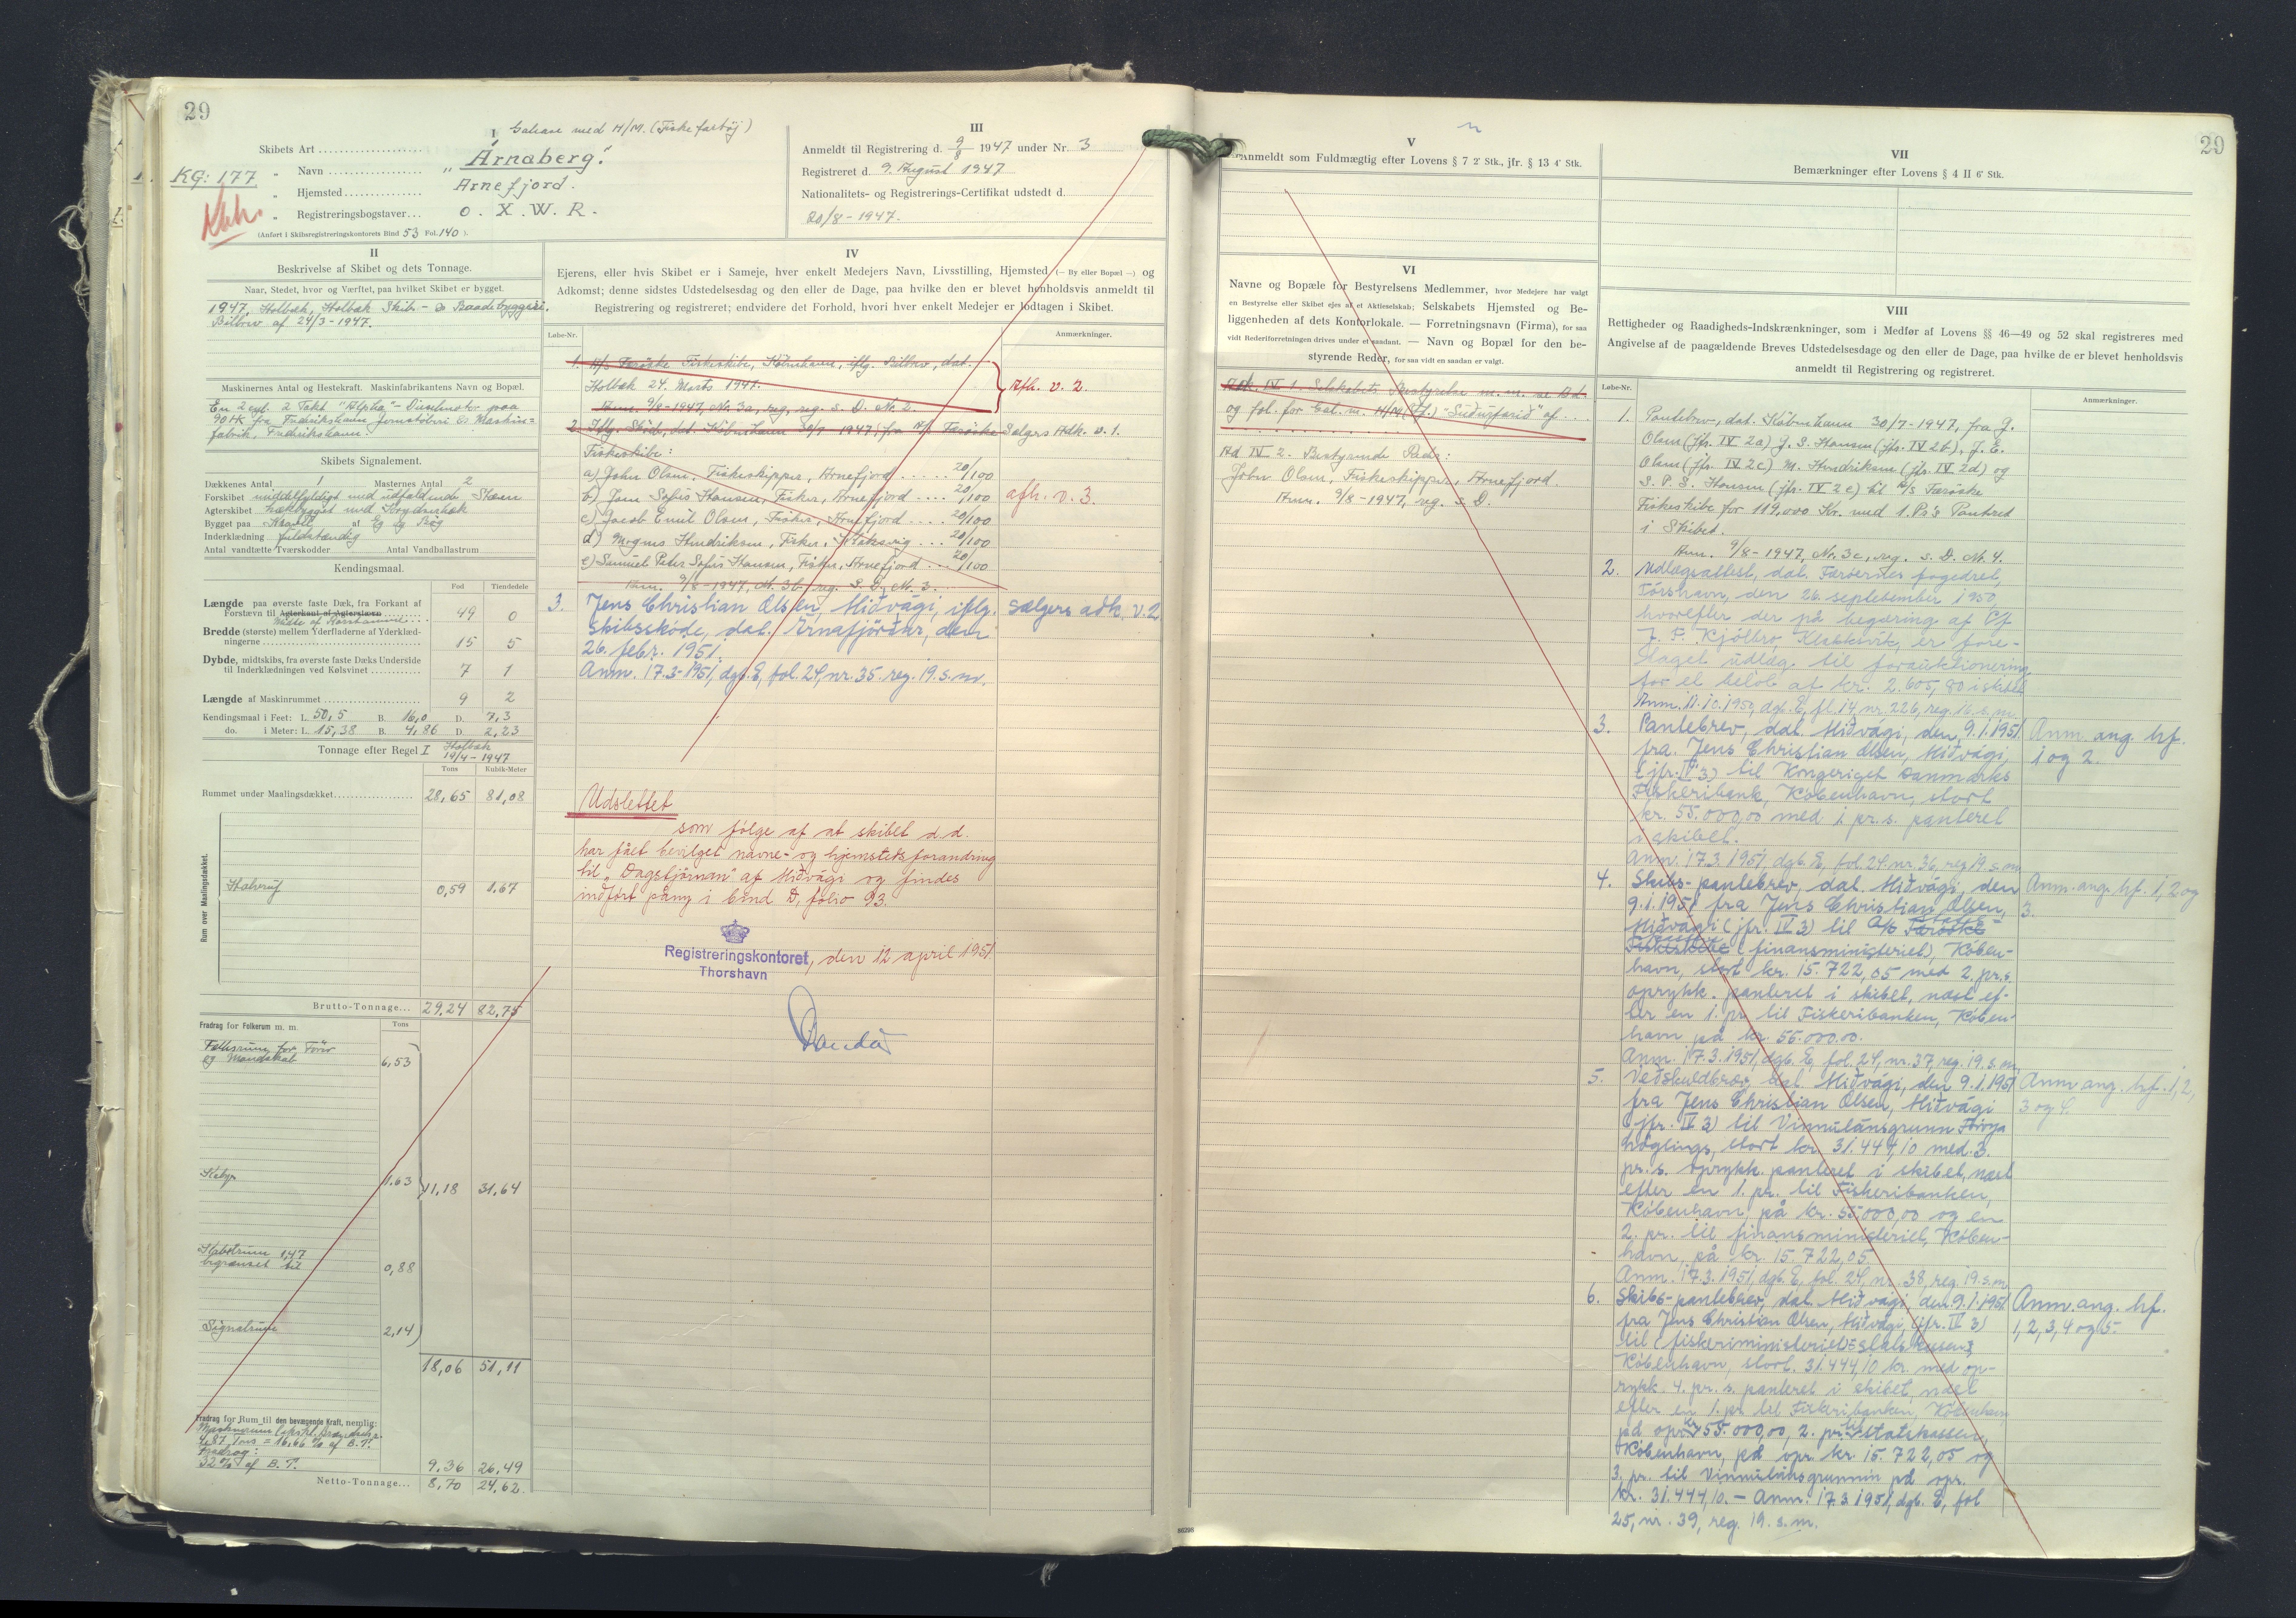 29
I
Galease med H/M. (Fiskefartøj)
Skibets Art
KG: 177
" Navn "Árnaberg".
" Hjemsted Arnefjord.
Kbh.
" Registreringsbogstaver... O. X. W. R.
(Anført i Skibsregistreringskontorets Bind 53 Fol. 140 ).
III
Anmeldt til Registrering d. 9/8 1947 under Nr. 3
Registreret d. 9. August 1947
Nationalitets- og Registrerings-Certifikat udstedt d.
20/8 - 1947.
II
Beskrivelse af Skibet og dets Tonnage.
Naar, Stedet, hvor og Værftet, paa hvilket Skibet er bygget.
1947, Holbæk, Holbæk Skibs- & Baadebyggeri.
Bilbrev af 24/3-1947.
Maskinernes Antal og Hestekraft. Maskinfabrikantens Navn og Bopæl.
En 2 cyl. 2 Takt "Alpha"-Dieselmotor paa
90 HK fra Frederikshavn Jernstøberi & Maskin=
fabrik, Frederikshavn.
Skibets Signalement.
Dækkenes Antal 1 Masternes Antal 2
Forskibet middelfyldigt med udfaldende Stævn
Agterskibet hækbygget med Krydserhæk
Bygget paa Kravel af Eg og Bøg
Inderklædning fuldstændig
Antal vandtætte Tværskodder Antal Vandballastrum
Kendingsmaal.
Fod Tiendedele
Længde paa øverste faste Dæk, fra Forkant af
Forstævn til Agterkant af Agterstævn 49 0
Midte af Rorstammen
Bredde (største) mellem Yderfladerne af Yderklæd-
ningerne 15 5
Dybde, midtskibs, fra øverste faste Dæks Underside
til Inderklædningen ved Kølsvinet 7 1
Længde af Maskinrummet 9 2
Kendingsmaal i Feet: L. 50,5 B. 16,0 D. 7,3
do. i Meter: L. 15,38 B. 4,86 D. 2,23
Tonnage efter Regel I Holbæk
19/4-1947
Tons Kubik-Meter
Rummet under Maalingsdækket 28,65 81,08
Rum over Maalingsdækket.
Halvruf 0,59 1,67
Brutto-Tonnage... 29,24 82,75
Fradrag for Folkerum m. m. Tons
Folkerum for Fører
og Mandskab 6,53
Kabys 1,63
11,18 31,64
Kabelrum 1,47
begrænset til 0,88
Signalrum 2,14
18,06 51,11
Fradrag for Rum til den bevægende Kraft, nemlig:
4,87 Tons = 16,66 % af B.T.
Fradrag:
32% af B.T. 9,36 26,49
Netto-Tonnage... 8,70 24,62
IV
Ejerens, eller hvis Skibet er i Sameje, hver enkelt Medejers Navn, Livsstilling, Hjemsted (- By eller Bopæl -) og
Adkomst; denne sidstes Udstedelsesdag og den eller de Dage, paa hvilke den er blevet henholdsvis anmeldt til
Registrering og registreret; endvidere det Forhold, hvori hver enkelt Medejer er lodtagen i Skibet.
Løbe-Nr. Anmærkninger.
1. A/S Færøske Fiskeskibe, København, iflg. Bilbrev, dat.
Holbæk 24. Marts 1947. Afh. v. 2.
Anm. 9/8-1947, Nr. 3a, reg. s. D. Nr. 2.
2. Iflg. Skøde, dat. København 30/7-1947, fra A/S Færøske Sælgers Adk. v. 1.
Fiskeskibe:
a) John Olsen, Fiskeskipper, Arnefjord ..... 20/100
b) Jens Sofus Hansen, Fisker, Arnefjord .... 20/100 afh. v. 3.
c) Jacob Emil Olsen, Fisker, Arnefjord .... 20/100
d) Mogens Hendriksen, Fisker, Klaksvig ... 20/100
e) Samuel Peter Sofus Hansen, Fisker, Arnefjord ... 20/100
Anm. 9/8-1947, Nr. 3b, reg. s. D. Nr. 3.
3. Jens Christian Olsen, Miðvági, iflg. Sælgers adk. v. 2
skibsskøde, dat. Árnafjørður, den
26. febr. 1951.
Anm. 17.3-1951, dgb. E, fol. 24, nr. 35. reg. 19. s. m.
Udslettet
som følge af at skibet d.d.
har fået bevilget navne- og hjemstedsforandring
til "Dagstjørnan" af Miðvági og findes
indført påny i bind D, folio 93.
Registreringskontoret, den 12 april 1951.
Thorshavn
V
29
Anmeldt som Fuldmægtig efter Lovens § 7 2' Stk., jfr. § 13 4' Stk.
VI
Navne og Bopæle for Bestyrelsens Medlemmer, hvor Medejere har valgt
en Bestyrelse eller Skibet ejes af et Aktieselskab; Selskabets Hjemsted og Be-
liggenheden af dets Kontorlokale. — Forretningsnavn (Firma), for saa
vidt Rederiforretningen drives under et saadant. — Navn og Bopæl for den be-
styrende Reder, for saa vidt en saadan er valgt.
Adk. IV 1. Selskabets Bestyrelse m. m. se Bd.
og fol. for Gal. m. H/M (Ff.) "Suðurfarið" af ..
Ad IV 2. Bestyrende Reder:
John Olsen, Fiskeskipper, Arnefjord.
Anm. 9/8-1947, reg. s. D.
VII
Bemærkninger efter Lovens § 4 II 6' Stk.
VIII
Rettigheder og Raadigheds-Indskrænkninger, som i Medfør af Lovens §§ 46—49 og 52 skal registreres med
Angivelse af de paagældende Breves Udstedelsesdage og den eller de Dage, paa hvilke de er blevet henholdsvis
anmeldt til Registrering og registreret.
Løbe-Nr. Anmærkninger.
1. Pantebrev, dat. København 30/7-1947, fra J.
Olsen (jfr. IV 2a) J. S. Hansen (jfr. IV 2b), J. E.
Olsen (jfr. IV 2c) M. Hendriksen (jfr. IV 2d) og
S. P. S. Hansen (jfr. IV 2e) til A/S Færøske
Fiskeskibe for 119,000 Kr. med 1. Ps's Panteret
i Skibet.
Anm. 9/8-1947, Nr. 3c, reg. s. D. Nr. 4.
2. Udlægsattest, dat. Færøernes fogedret,
Tórshavn, den 26. september 1950,
hvorefter der på begæring af
J. F. Kjølbro, Klaksvík, er fore-
taget udlæg til forauktionering
for et beløb af kr. 2.605,80 i skibet
Anm. 11.10.1950, dgb. E, fl. 14, nr. 226, reg. 16. s. m.
3. Pantebrev, dat. Miðvági, den 9.1.1951 Anm. ang. hf.
fra Jens Christian Olsen, Miðvági, 1 og 2.
(jfr. IV 3) til Kongeriget Danmarks
Fiskeribank, København, stort
kr. 55.000,00 med 1 pr. s. panteret
i skibet.
Anm. 17.3.1951, dgb. E, fol. 24, nr. 36, reg 19. s. m.
4. Skibs-pantebrev, dat. Miðvági, den Anm. ang. hf. 1, 2 og
9.1.1951 fra Jens Christian Olsen, 3.
Miðvági (jfr. IV 3) til A/S Færøske
Fiskeskibe (finansministeriet), Køben-
havn, stort kr. 15.722,05 med 2. pr. s.
oprykk. panteret i skibet, næst ef-
ter en 1. pr. til Fiskeribanken, Køben-
havn på kr. 55.000.00.
Anm. 17.3.1951, dgb. E, fol. 24, nr. 37, reg. 19. s. m.
5. Veðskuldbræv, dat. Miðvági, den 9.1.1951 Anm ang. hf. 1, 2,
fra Jens Christian Olsen, Miðvági 3 og 4.
(jfr. IV 3) til Vinnulánsgrunn Føroya
Løgtings, stort kr. 31.444,10 med 3.
pr. s. oprykk. panteret i skibet, næst
efter en 1. pr. til Fiskeribanken,
København på kr. 55.000,00 og en
2. pr. til finansministeriet, Køben-
havn, på kr. 15.722,05.
Anm. 17.3.1951, dgb. E, fol. 24, nr. 38, reg. 19. s. m.
6. Skibs-pantebrev, dat. Miðvági, den 9.1.1951 Anm. ang. hf.
fra Jens Christian Olsen, Miðvági, (jfr. IV 3) 1, 2, 3, 4 og 5.
til (fiskeriministeriet) Statskassen,
København, stort. 31.444,10 kr. med op-
rykk. 4. pr. s. panteret i skibet, næst
efter en 1. pr til Fiskeribanken, København
på opr. kr 55.000,00, 2. pr. til statskassen,
København, på opr. kr. 15.722,05 og
3. pr. til Vinnulánsgrunnin på opr.
kr. 31.444,10. - Anm. 17.3.1951, dgb. E, fol
25, nr. 39, reg. 19. s. m.
86398